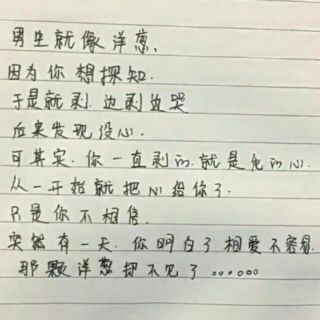 男生就像洋葱,
因为你想探知.
于是就剥.边剥边哭
后来发现没心.
可其实.你一直剥的.就是他的心.
从一开始就把心给你了.
只是你不相信.
突然有一天.你明白了相爱不容易.
那颗洋葱却不见了......